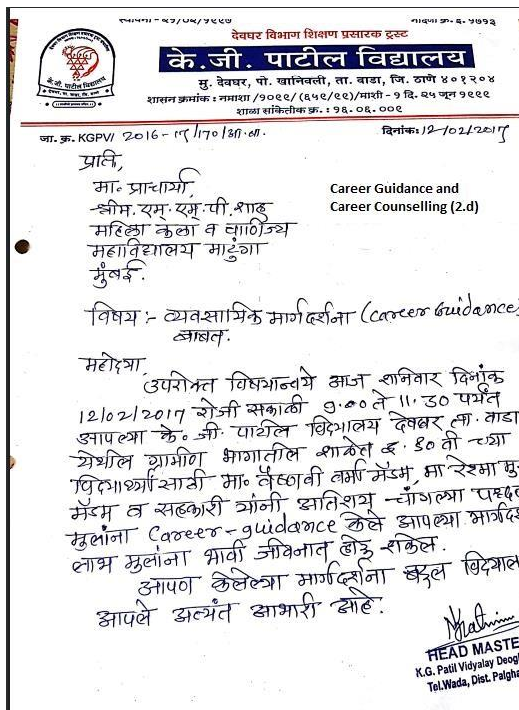 स्थापना - २१/०६/१९९७ नोंदणी क्र. इ. १७१३
देवघर विभाग शिक्षण प्रसारक ट्रस्ट
के. जी. पाटील विद्यालय
मु. देवघर, पो. खानिवली, ता. वाडा, जि. ठाणे ४०१२०४
शासन क्रमांक : नमाशा /१०९९/(६५९/९९)/माशी - १ दि. २५ जून १९९९
शाला सांकेतीक क्र. : १६.०६.००९
जा. क्र. KGPV/ 2016-17/170/आ.बा. दिनांक: 12/02/2017
प्रति,
मा. प्राचार्या,
श्रीम. एम. एम. पी. शाह
Career Guidance and
Career Counselling (2.d)
महिला कला व वाणिज्य
महाविद्यालय माटुंगा
मुंबई.
विषय :- व्यवसायिक मार्गदर्शना (Career Guidance)
बाबत.
महोदया,
उपरोक्त विषयान्वये आज शनिवार दिनांक
12/02/2017 रोजी सकाळी 9.00 ते 11.30 पर्यंत
आपल्या के. जी. पाटील विद्यालय देवघर ता. वाडा
येथील ग्रामीण भागातील शाळेत इ. 10 वी च्या
विद्यार्थ्यांसाठी मा. वैष्णवी वर्मा मॅडम, मा रेश्मा
मॅडम व सहकारी यांनी अतिशय चांगल्या
मुलांना Career-guidance केले आपल्या
लाभ मुलांना भावी जीवनात होऊ शकेल.
आपण केलेल्या मार्गदर्शना बद्दल
आपले अत्यंत आभारी आहे.
HEAD MASTE
K.G. Patil Vidyalay Deog
Tel.Wada, Dist. Palgha